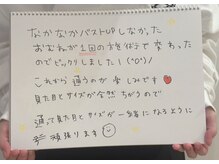 なかなかバストUPしなかった
おむねが 1回の施術で変わった
のでビックリしました！(°o°)/
これから通うのが楽しみです
見た目とサイズが全然ちがうので
通って見た目とサイズが一緒になるように
頑張ります